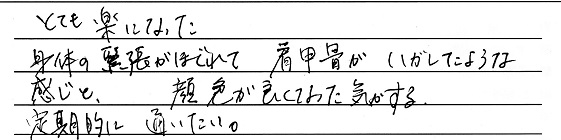 とても楽になった
身体の緊張がほどれて 肩甲骨が したような
感じと、 顔色が良くなった気がする.
定期的に 通いたい。